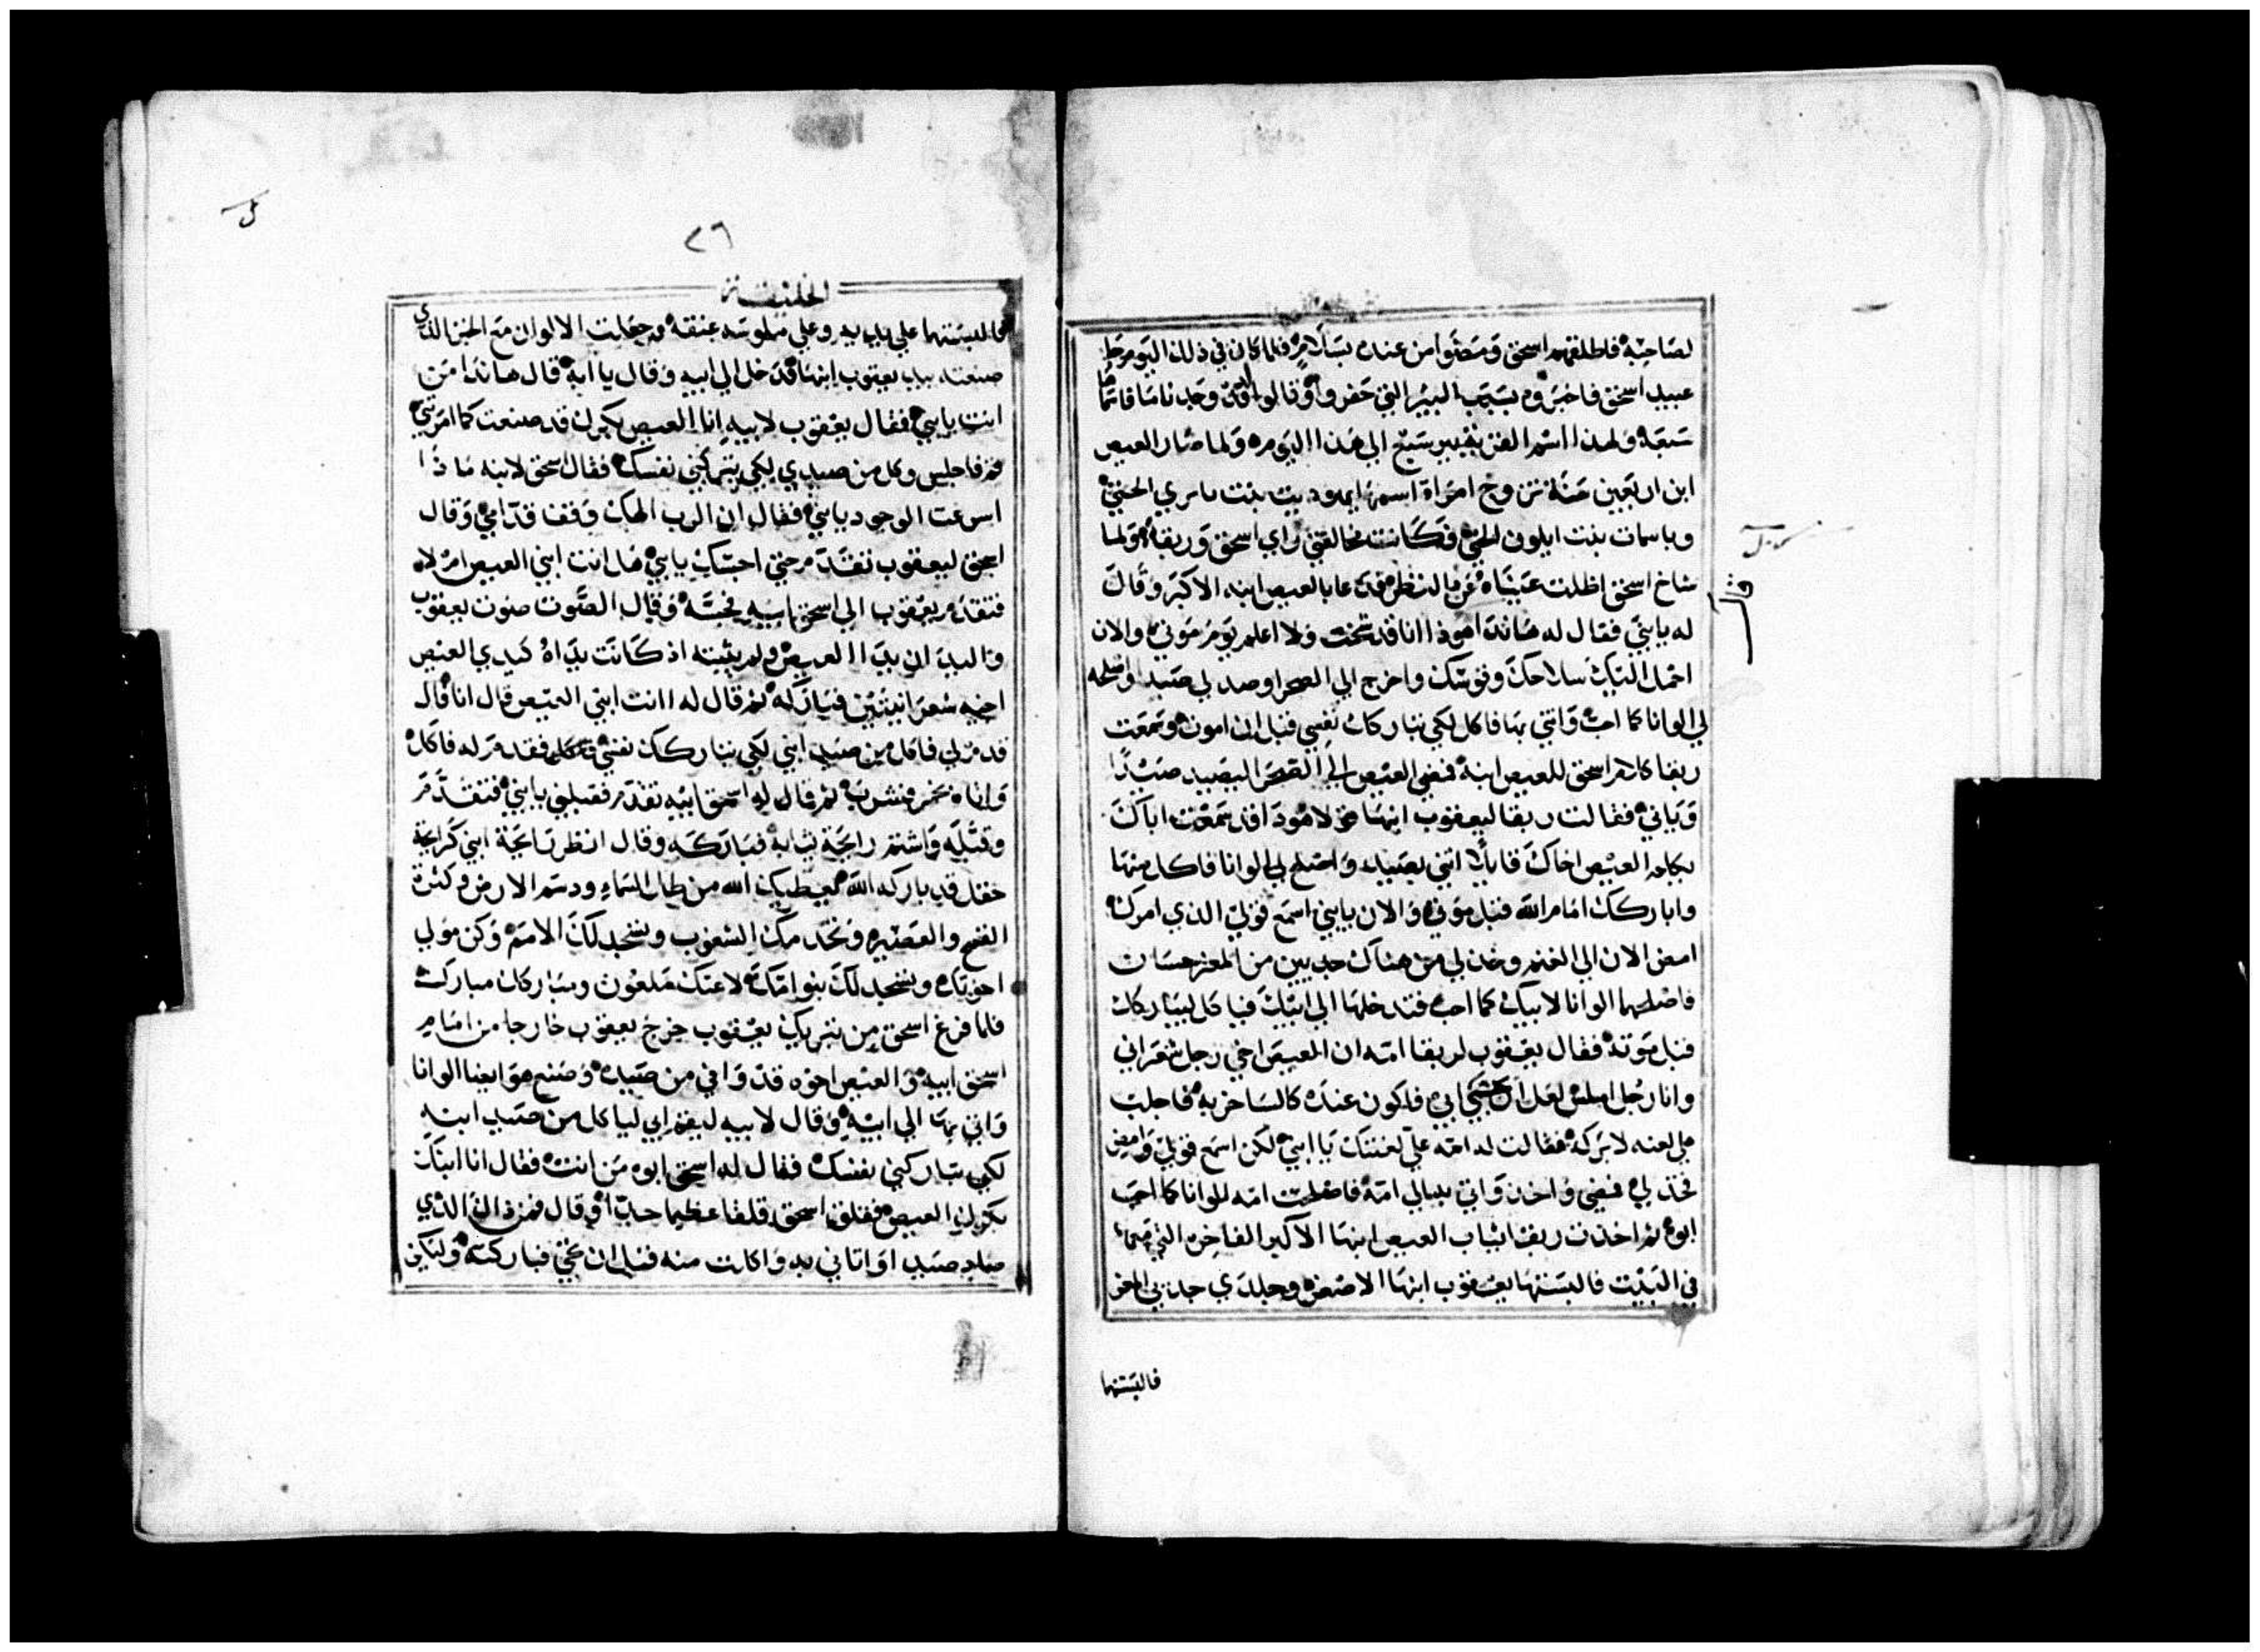 لصاحبه فاطلقهم اسحق ومضوا من عنده بسلام فلما كان في ذلك اليوم جا
عبيد اسحق فاخبروه بسبب البير التي حفروا وقالوا لم نجد ما فاسماها
سبعه ولهذا اسم القريه بيرسبع الي هذا اليوم ولما صار العيص
ابن اربعين سنة تزوج امراة اسمها يهوديت بنت باري الحيثي
وباسمات بنت ايلون الحثي فكانت مخالفتي راي اسحق وريقا ولما
شاخ اسحق اظلت عيناه عن النظر فدعا بالعيص ابنه الاكبر وقال
له يابني فقال له هانذا هوذا انا قد شخت ولا اعلم يوم موتي والان
احمل اليك سلاحك وقوسك واخرج الي الصحرا وصد لي صيدا واصلحه
لي الوانا كما احب واتني بها فاكل لكي تباركك نفسي قبل ان اموت وسمعت
ريقا كلام اسحق للعيص ابنه فمضي العيص الي الصحرا ليصيد صيدا
وياتي فقالت ريقا ليعقوب ابنها هوذا قد سمعت اباك
يكلم العيص اخاك قايلا اتني بصيد واصلح لي الوانا فاكل منها
واباركك امام الله قبل موتي والان يابني اسمع قولي الذي امرك
امض الان الي الغنم وخذ لي من هناك جديين من المعز حسان
فاصلحهما الوانا لابيك كما احب فتدخلها الي ابيك فياكل ليباركك
قبل موته فقال يعقوب لريقا امه ان العيص اخي رجل شعراني
وانا رجل املس لعل ان يجسني ابي فاكون عنده كالساخر به فاجلب
علي لعنه لا بركه فقالت له امه علي لعنتك يا ابني لكن اسمع قولي وامض
فخذ لي فمضي واخذ واتي بها الي امه فاصلحت امه الوانا كما احب
ابوه ثم اخذت ريقا ثياب العيص ابنها الاكبر الفاخره التي
في البيت فالبستها يعقوب ابنها الاصغر وجلدي جديي المعز
فالبستها
٢٦
الخليقة
فالبستهما علي يديه وعلي ملوسة عنقه وجعلت الالوان مع الخبز الذي
صنعته بيد يعقوب ابنها فدخل الي ابيه وقال يا ابه قال هانذا من
انت يابني فقال يعقوب لابيه انا العيص بكرك قد صنعت كما امرتني
قم فاجلس وكل من صيدي لكي تباركني نفسك فقال اسحق لابنه ماذا
اسرعت الوجود يابني فقال ان الرب الهك وقفنا قدامي وقال
اسحق ليعقوب تقدم حتي اجسك يابني هل انت ابني العيص ام لا
فتقدم يعقوب الي اسحق ابيه فجسه وقال الصوت صوت يعقوب
واليدان يدا العيص ولم يثبته اذ كانت يداه كيدي العيص
اخيه شعرانيتين فباركه ثم قال له انت ابني العيص قال انا قال
قدم لي فاكل من صيد ابني لكي تباركك نفسي فقدم له فاكل
واتاه بخمر فشرب ثم قال له اسحق ابيه تقدم فقبلني يابني فتقدم
وقبله واشتم رايحة ثيابه فباركه وقال انظر رايحة ابني كرايحة
حقل قد باركه الله يعطيك الله من طل السماء ودسم الارض وكثرة
القمح والعصير وتخدمك الشعوب وتسجد لك الامم وكن مولي
اخوتك وتسجد لك بنو امك لاعنك ملعون ومباركك مبارك
فلما فرغ اسحق من تبريك يعقوب خرج يعقوب خارجا من امام
اسحق ابيه والعيص اخوه قد وافي من صيده وصنع هو ايضا الوانا
واتي بها الي ابيه وقال لابيه ليقم ابي لياكل من صيد ابنه
لكي تباركني نفسك فقال له اسحق ابوه من انت فقال انا ابنك
بكرك العيص فقلق اسحق قلقا عظيما جدا وقال فمن ذاك الذي
صاد صيدا واتاني به واكلت منه قبل ان تجي فباركته وليكن